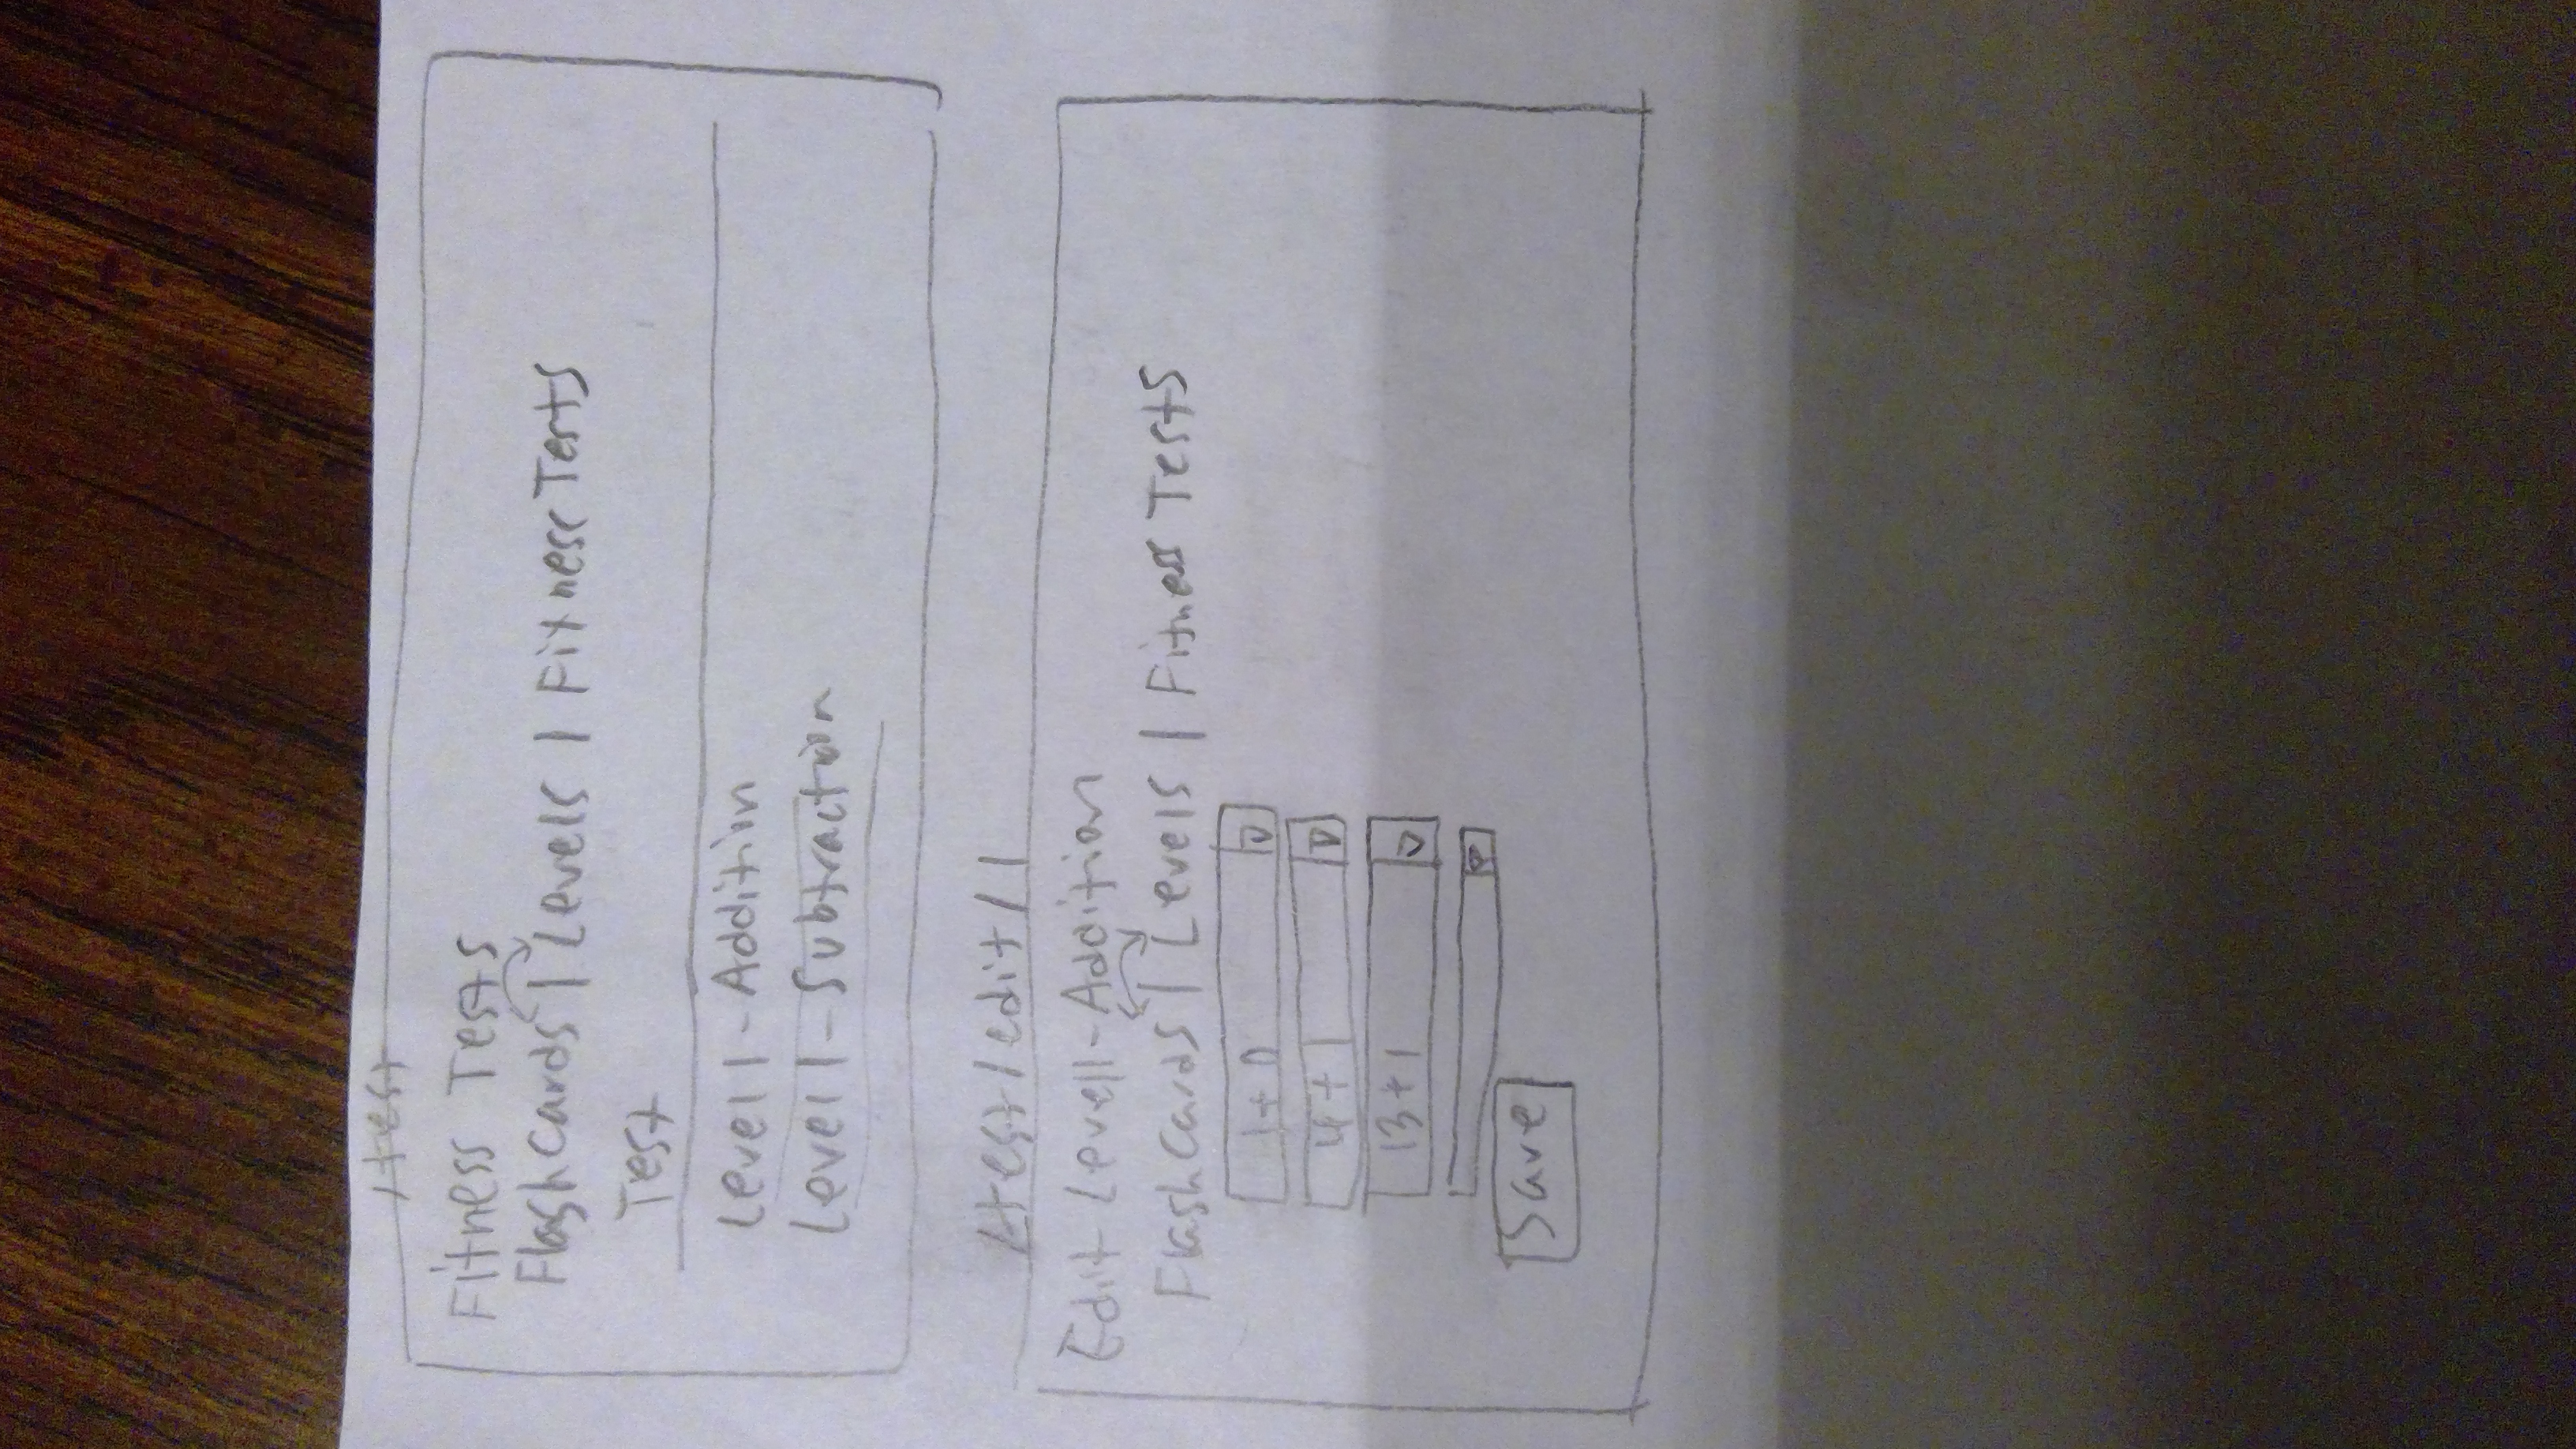 /test
Fitness Tests
Flash Cards | Levels | Fitness Tests
Test
Level 1 - Addition
Level 1 - Subtraction
/test/edit/1
Edit Level 1 - Addition
Flash Cards | Levels | Fitness Tests
1 + 0
4 + 1
13 + 1
Save